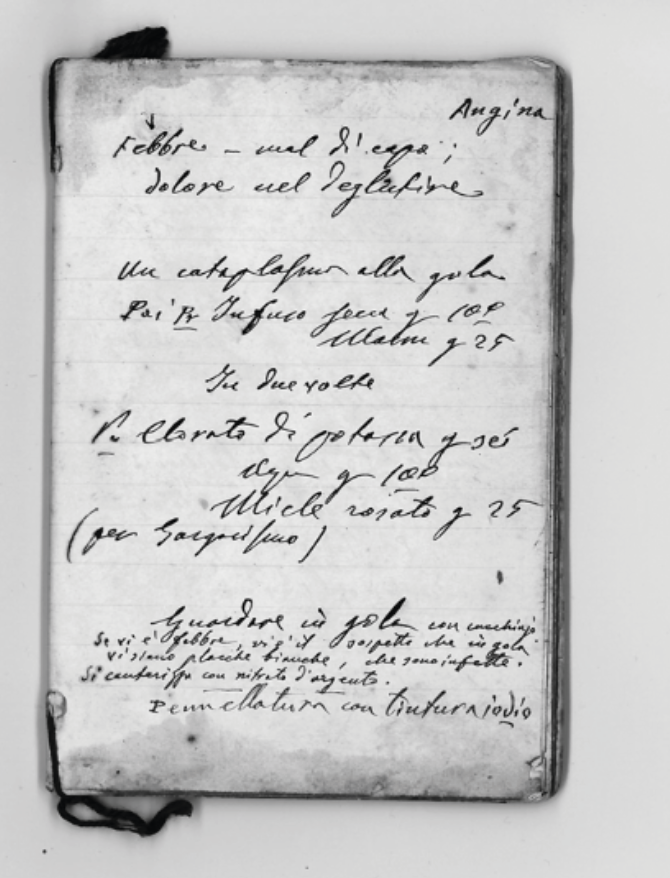 Angina
Febbre - mal di capo ;
dolore nel deglutire
Un cataplasmo alla gola
Poi Pr Infuso sena g 100
Manna g 25
In due volte
Pr Clorato di potassa g sei
Aqua g 100
Miele rosato g 25
(per Gargarismo)
Guardare in gola con cucchiajo
Se vi è febbre, vi è il sospetto che in gola
vi siano placche bianche, che sono infette.
Si cauterizza con nitrato d'argento.
Pennellatura con tintura iodio